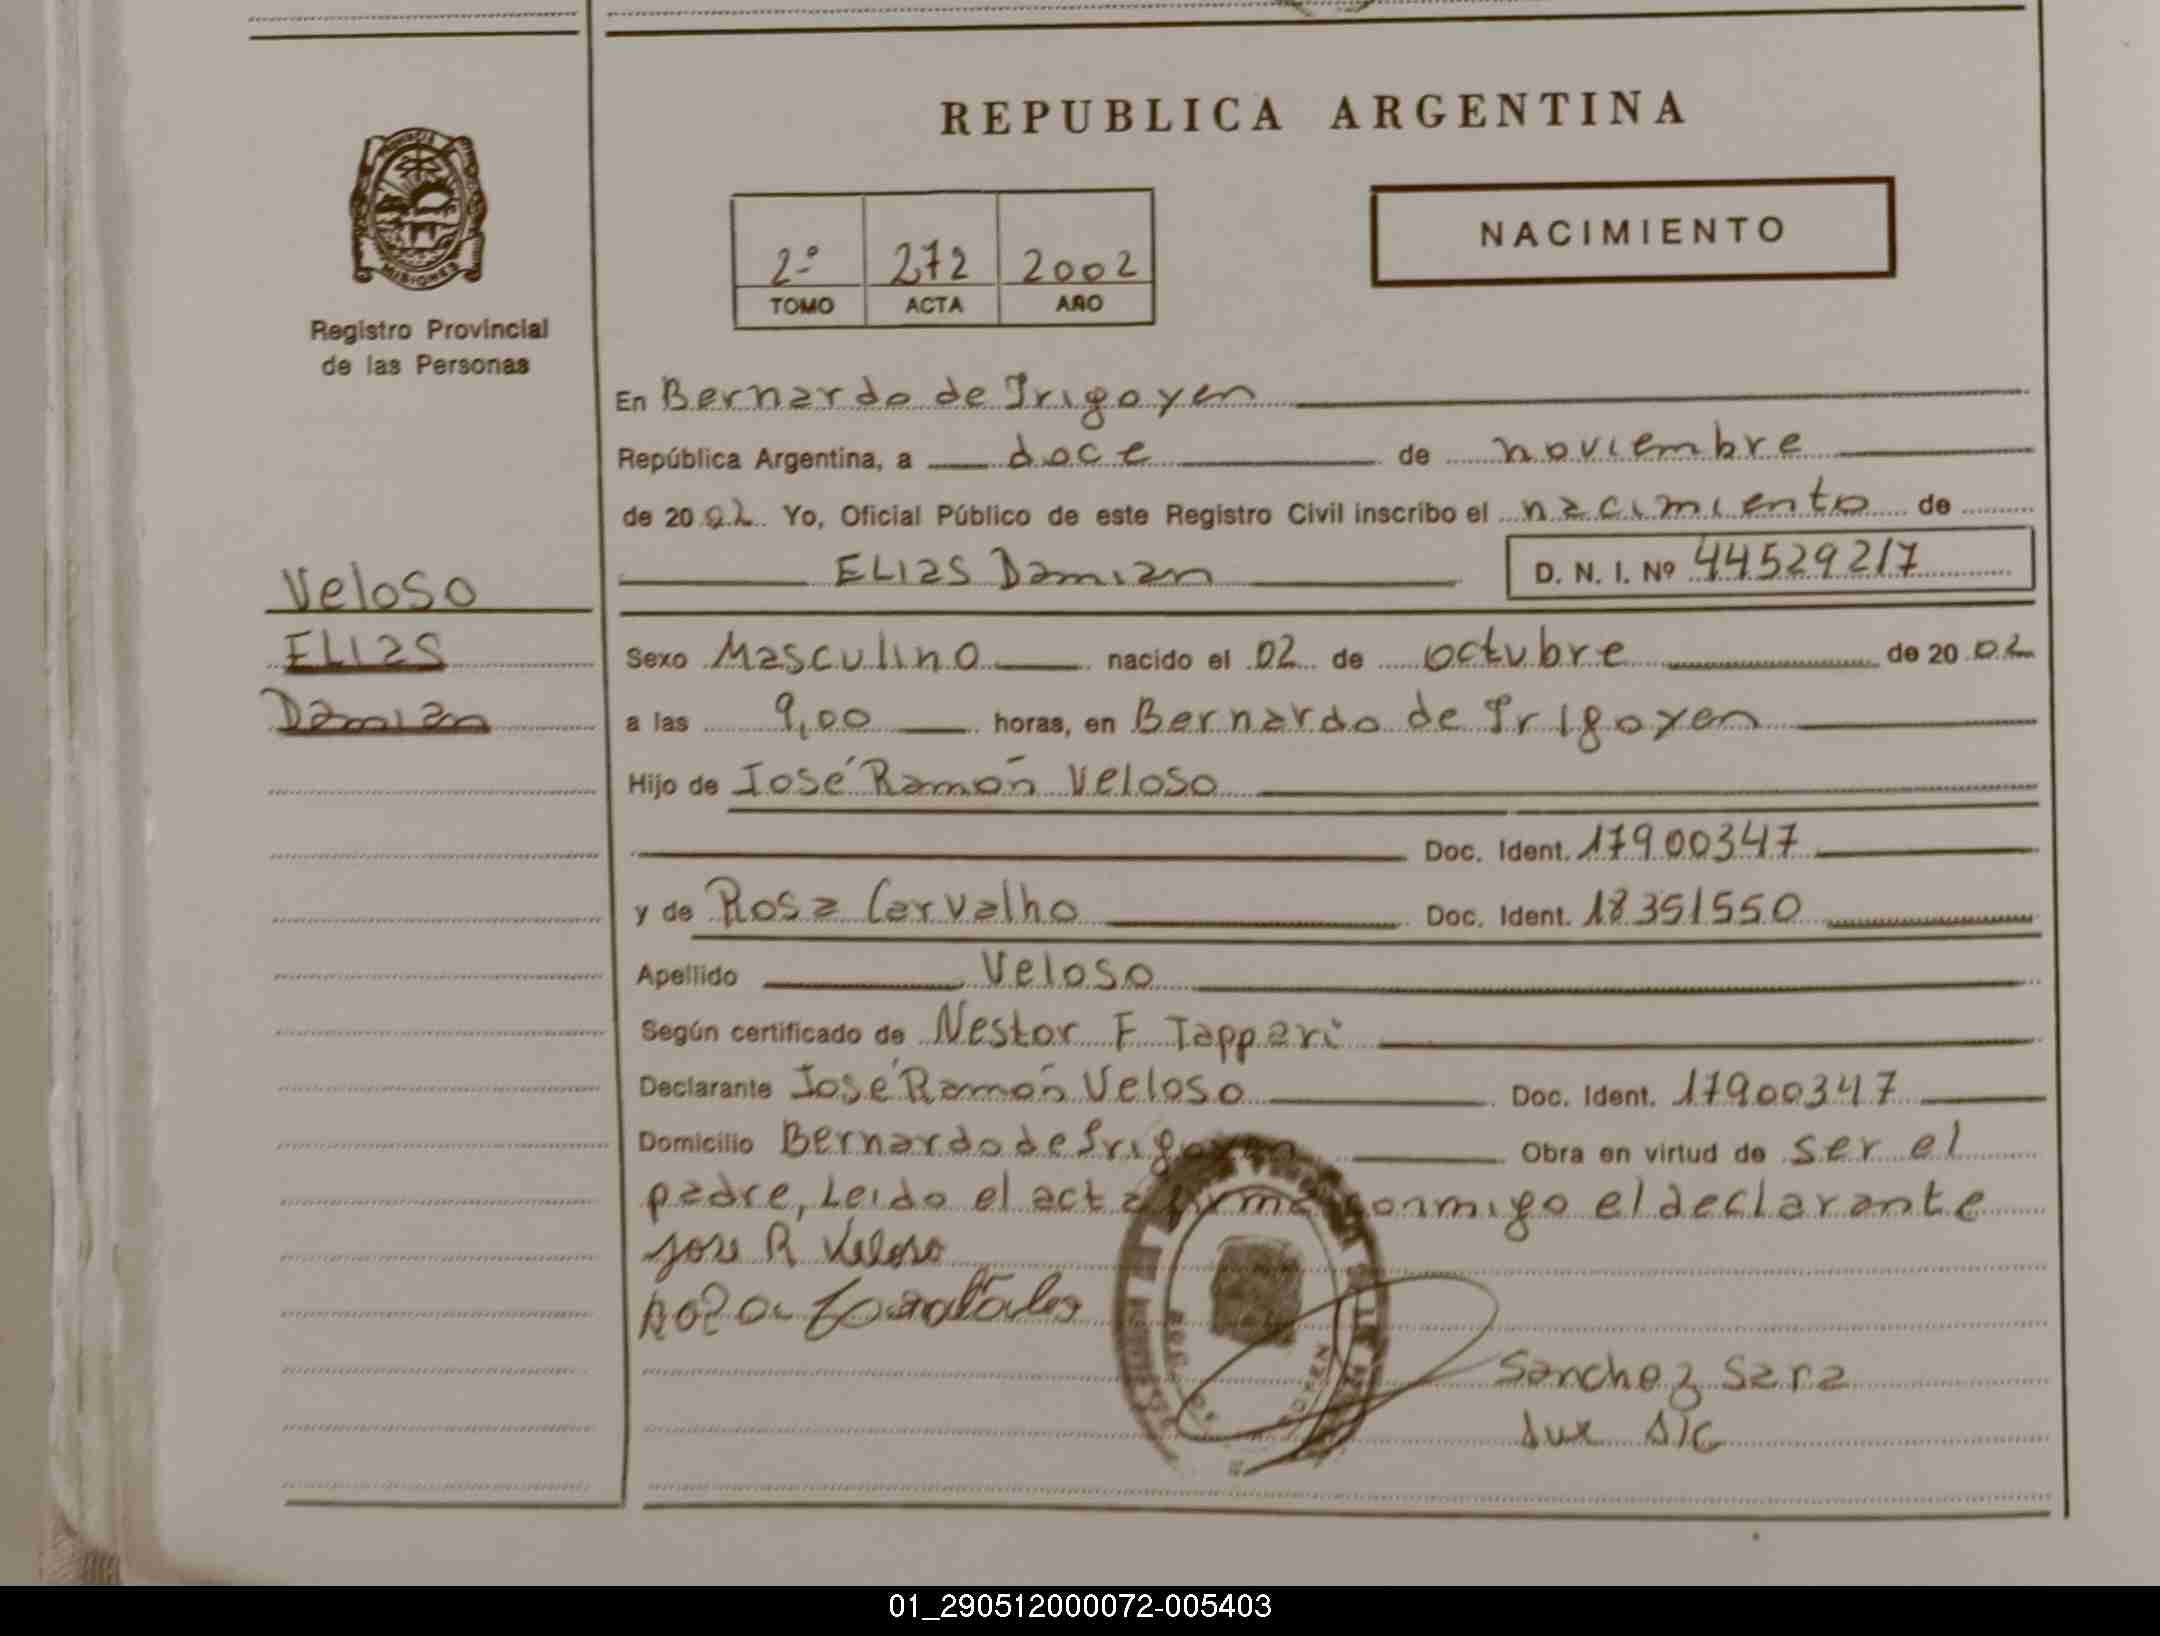 REPUBLICA ARGENTINA
NACIMIENTO
2º 272 2002
TOMO ACTA AÑO
PROVINCIA
MISIONES
Registro Provincial
de las Personas
Veloso
ELIAS
Damian
En Bernardo de Irigoyen
República Argentina, a doce de noviembre
de 2002 Yo, Oficial Público de este Registro Civil inscribo el nacimiento de
ELIAS Damian D. N. I. Nº 44529217
Sexo Masculino nacido el 02 de octubre de 2002
a las 9,00 horas, en Bernardo de Irigoyen
Hijo de José Ramón Veloso
Doc. Ident. 17900347
y de Rosa Carvalho Doc. Ident. 18351550
Apellido Veloso
Según certificado de Nestor F Tappari
Declarante José Ramón Veloso Doc. Ident. 17900347
Domicilio Bernardo de Irigoyen Obra en virtud de ser el
padre, Leido el acta firma conmigo el declarante
Jose R Veloso
Sanchez Sara
01_290512000072-005403